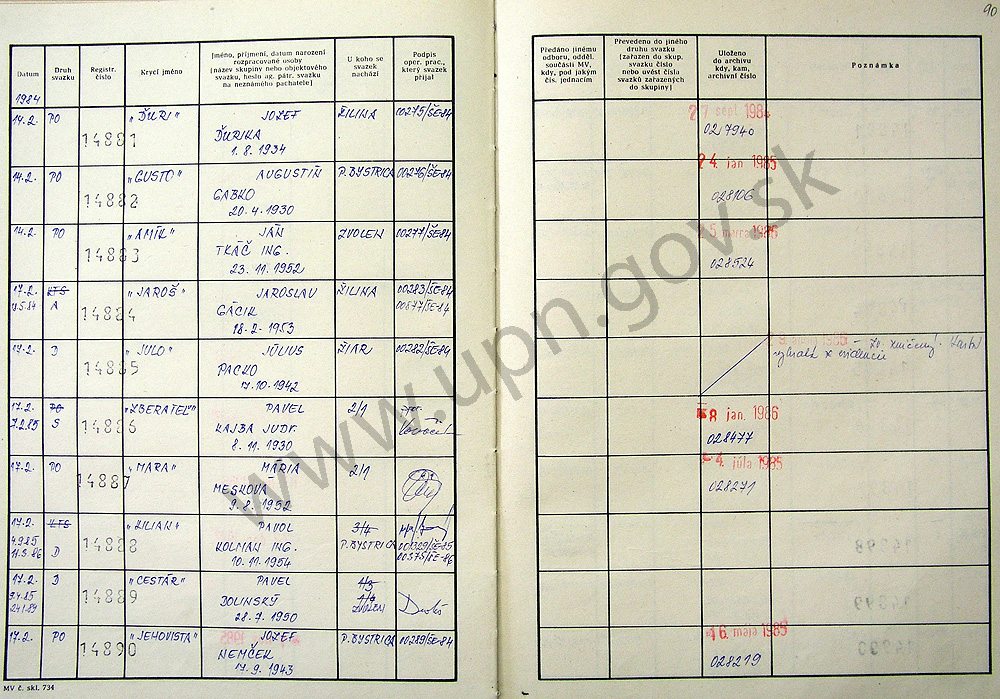 90
Datum
Druh svazku
Registr. číslo
Krycí jméno
Jméno, příjmení, datum narození
rozpracované osoby
(název skupiny nebo objektového
svazku, heslo ag. pátr. svazku
na neznámého pachatele)
U koho se
svazek
nachází
Podpis
oper. prac.,
který svazek
přijal
Předáno jinému
odboru, odděl.
součásti MV,
kdy, pod jakým
čís. jednacím
Převedeno do jiného
druhu svazku
(zařazen do skup.
svazku číslo
nebo uvést čísla
svazků zařazených
do skupiny)
Uloženo
do archivu
kdy, kam,
archivní číslo
Poznámka
1984
14.2. PO 14881 "ĎURI" JOZEF ŽILINA 00275/ŠE-84 27 sept 1984
ĎURIKA 027940
1. 8. 1934
14.2. PO 14882 "GUSTO" AUGUSTÍN P. BYSTRICA 00276/ŠE-84 24. jan 1985
GABKO 028106
20. 4. 1930
14.2. PO 14883 "AMÍK" JÁN ZVOLEN 00277/ŠE-84 25 marca 1986
TKÁČ ING. 028524
23. 11. 1952
17.2. KTS 14884 "JAROŠ" JAROSLAV ŽILINA 00283/ŠE-84
A GÁCIK 00877/ŠE-84
18. 2. 1953
17.2. D 14885 "JULO" JÚLIUS ŽIAR 00282/ŠE-84 1985 - zničený.
PACKO
7. 10. 1942
17.2. PO 14886 "ZBERATEĽ" PAVEL 2/1 8 jan. 1986
7.2.85 S KAJBA JUDr. 028477
8. 11. 1930
17.2. PO 14887 "MARA" MÁRIA 2/1 4. júla 1985
MESKOVÁ 028271
9. 8. 1952
17.2. KTS 14888 "KILIAN" PAVOL 3/4
4.9.85 KOLMAN ING. P. BYSTRICA 001329/ŠE-85
11.3.86 D 10. 11. 1954 00375/ŠE-86
17.2. D 14889 "CESTÁR" PAVEL 1/3
9.4.85 DOLINSKÝ 1/6
24.1.89 28. 7. 1950 ZVOLEN
17.2. PO 14890 "JEHOVISTA" JOZEF P. BYSTRICA 00289/ŠE-84 16. mája 1985
NEMČEK 028219
17. 9. 1943
MV č. skl. 734
www.upn.gov.sk